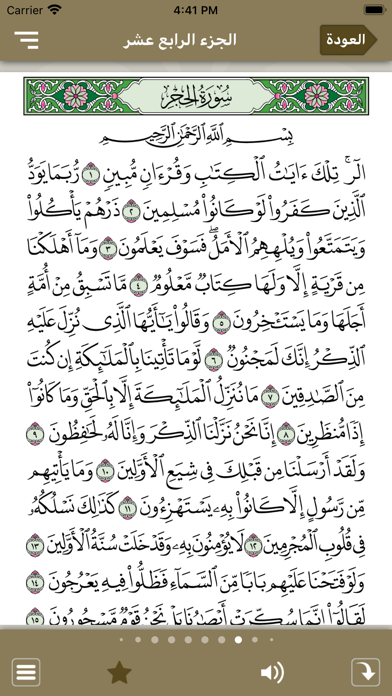 Carrier 4:41 PM
العودة
الجزء الرابع عشر
سُورَةُ الحِجْرِ
بِسْمِ ٱللَّهِ ٱلرَّحْمَٰنِ ٱلرَّحِيمِ
الٓر ۚ تِلْكَ ءَايَٰتُ ٱلْكِتَٰبِ وَقُرْءَانٍ مُّبِينٍ ١ رُّبَمَا يَوَدُّ
ٱلَّذِينَ كَفَرُوا۟ لَوْ كَانُوا۟ مُسْلِمِينَ ٢ ذَرْهُمْ يَأْكُلُوا۟
وَيَتَمَتَّعُوا۟ وَيُلْهِهِمُ ٱلْأَمَلُ ۖ فَسَوْفَ يَعْلَمُونَ ٣ وَمَآ أَهْلَكْنَا
مِن قَرْيَةٍ إِلَّا وَلَهَا كِتَابٌ مَّعْلُومٌ ٤ مَّا تَسْبِقُ مِنْ أُمَّةٍ
أَجَلَهَا وَمَا يَسْتَـْٔخِرُونَ ٥ وَقَالُوا۟ يَٰٓأَيُّهَا ٱلَّذِى نُزِّلَ عَلَيْهِ
ٱلذِّكْرُ إِنَّكَ لَمَجْنُونٌ ٦ لَّوْ مَا تَأْتِينَا بِٱلْمَلَٰٓئِكَةِ إِن كُنتَ
مِنَ ٱلصَّٰدِقِينَ ٧ مَا نُنَزِّلُ ٱلْمَلَٰٓئِكَةَ إِلَّا بِٱلْحَقِّ وَمَا كَانُوٓا۟
إِذًا مُّنظَرِينَ ٨ إِنَّا نَحْنُ نَزَّلْنَا ٱلذِّكْرَ وَإِنَّا لَهُۥ لَحَٰفِظُونَ ٩
وَلَقَدْ أَرْسَلْنَا مِن قَبْلِكَ فِى شِيَعِ ٱلْأَوَّلِينَ ١٠ وَمَا يَأْتِيهِم
مِّن رَّسُولٍ إِلَّا كَانُوا۟ بِهِۦ يَسْتَهْزِءُونَ ١١ كَذَٰلِكَ نَسْلُكُهُۥ
فِى قُلُوبِ ٱلْمُجْرِمِينَ ١٢ لَا يُؤْمِنُونَ بِهِۦ وَقَدْ خَلَتْ سُنَّةُ ٱلْأَوَّلِينَ ١٣
وَلَوْ فَتَحْنَا عَلَيْهِم بَابًا مِّنَ ٱلسَّمَآءِ فَظَلُّوا۟ فِيهِ يَعْرُجُونَ ١٤
لَقَالُوٓا۟ إِنَّمَا سُكِّرَتْ أَبْصَٰرُنَا بَلْ نَحْنُ قَوْمٌ مَّسْحُورُونَ ١٥